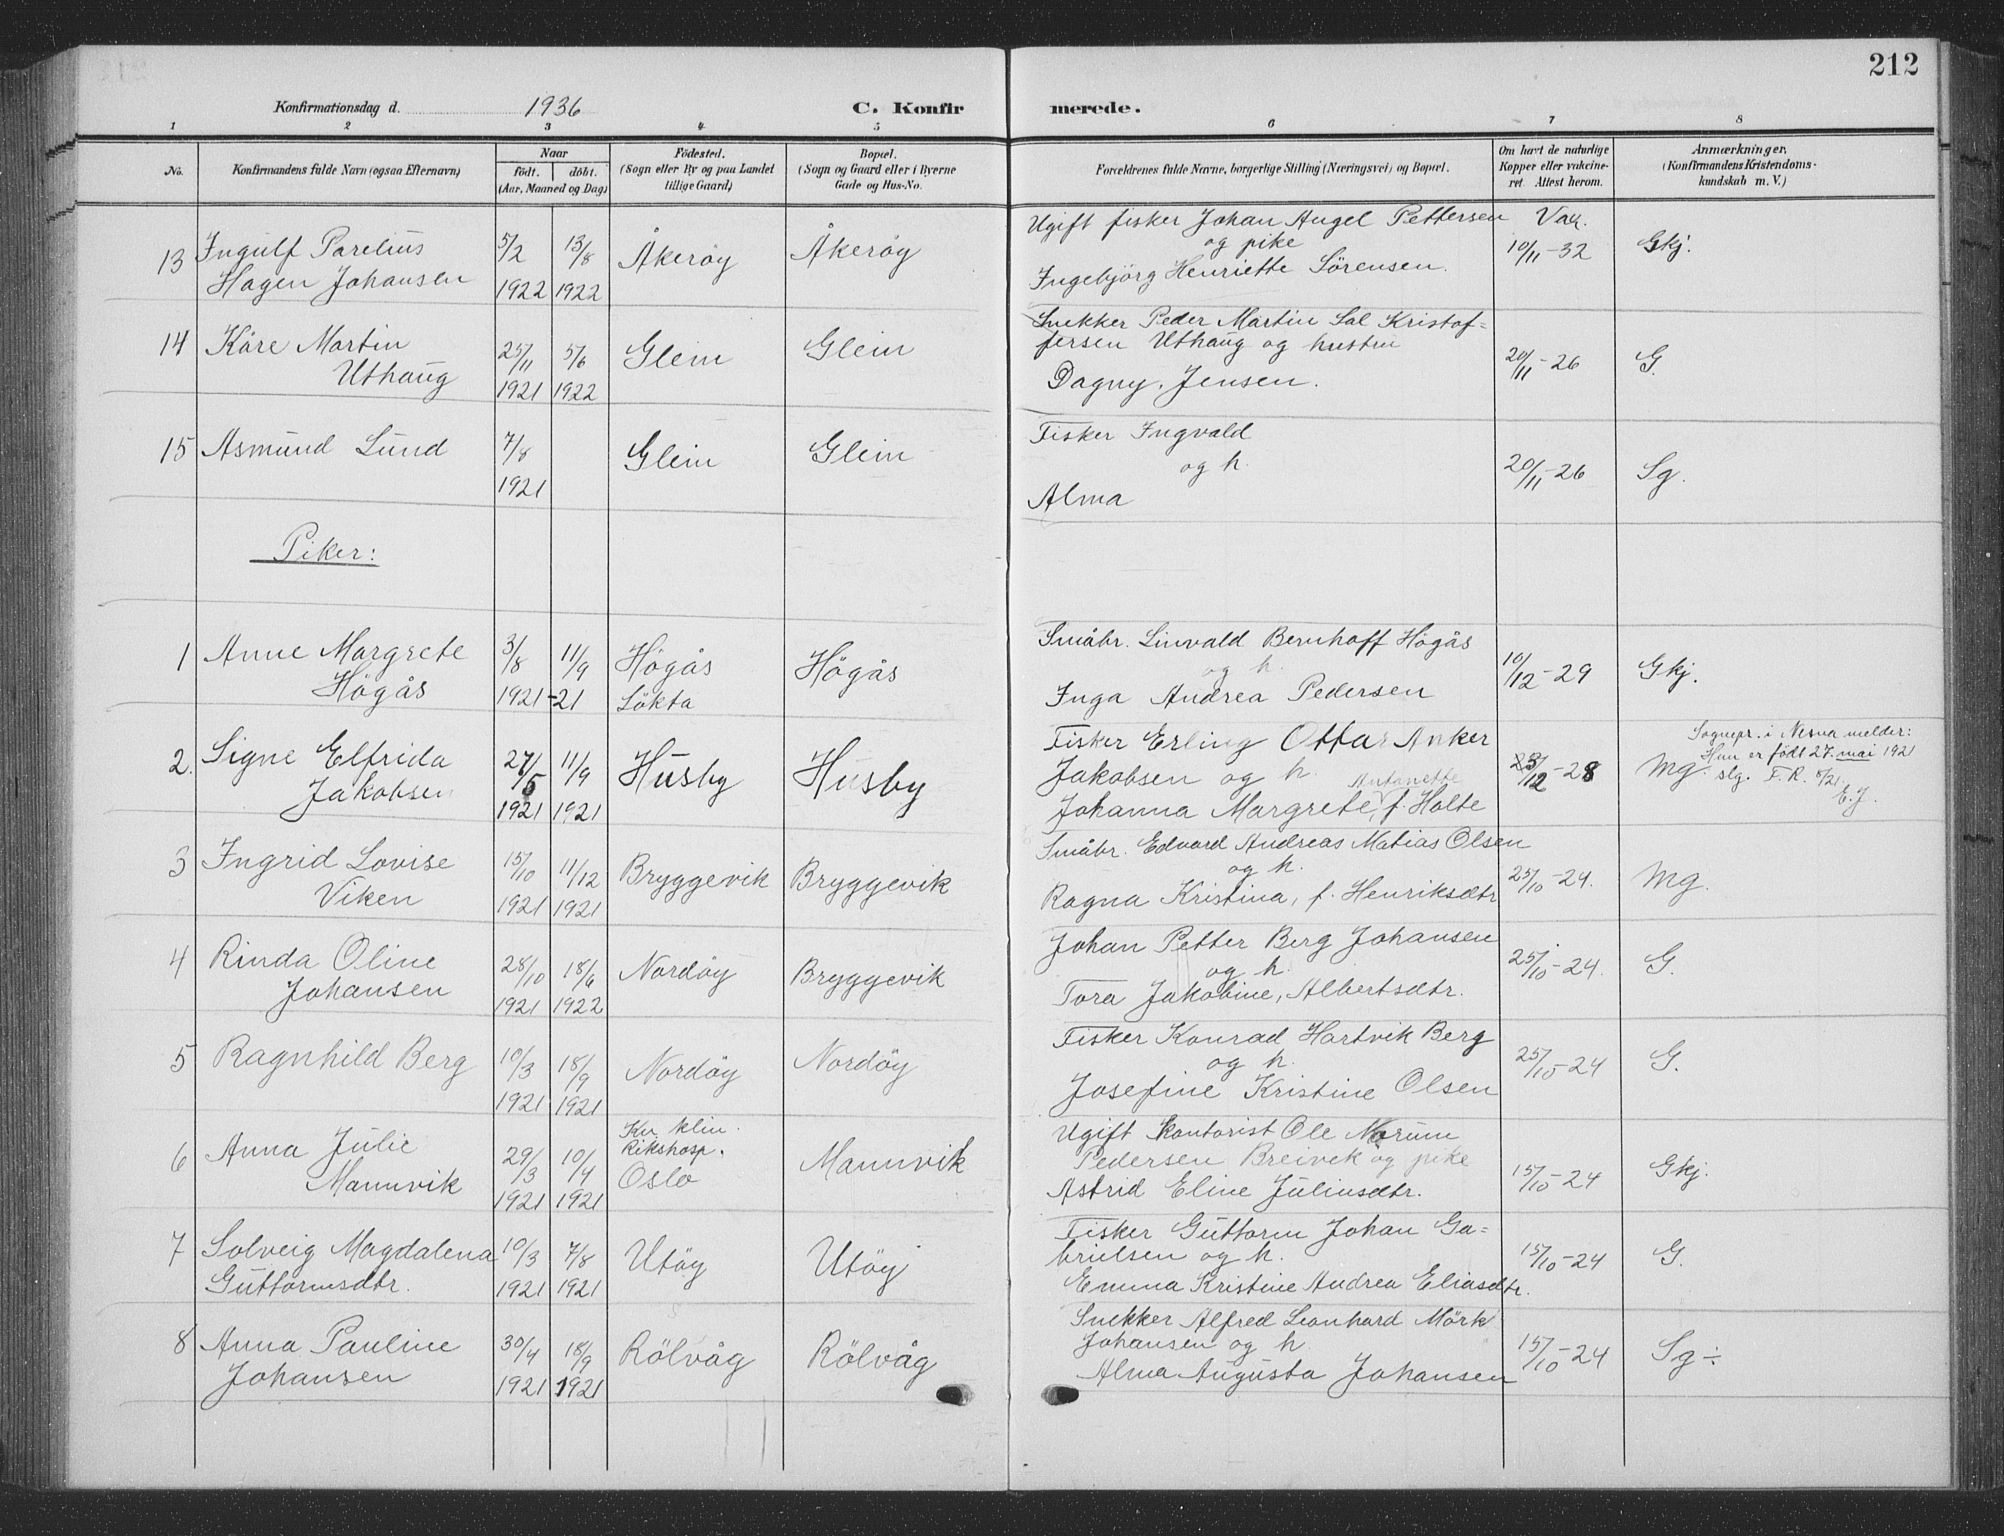 212
Konfirmationsdag d. 1936 C. Konfirmerede.
1 2 3 4 5 6 7 8
No. Konfirmandens fulde Navn (ogsaa Efternavn) Naar født. døbt. (Aar, Maaned og Dag) Fødested. (Sogn eller By og paa Landet tillige Gaard) Bopæl. (Sogn og Gaard eller i Byerne Gade og Hus-No. Forældrenes fulde Navne, borgerlige Stilling (Næringsvei) og Bopæl. Om havt de naturlige Kopper eller vakcineret. Attest herom. Anmærkninger. (Konfirmandens Kristendomskundskab m. V.)
13 Ingulf Parelius Hagen Johansen 5/2 1922 13/8 1922 Åkerøy Åkerøy
Ugift fisker Johan Angel Pettersen
og pike
Ingebjörg Henriette Sörensen.
Vak. 10/11-32 Gkj.
14 Kåre Martin Uthaug 25/11 1921 5/6 1922 Glein Glein
Snekker Peder Martin Sal Kristof=
fersen Uthaug og hustru
Dagny. Jensen.
20/11-26 G.
15 Asmund Lund 7/8 1921 Glein Glein
Fisker Ingvald
og h.
Alma
20/11-26 Sg.
Piker:
1 Anne Margrete Högås 3/8 1921 11/9 -21 Högås Lökta Högås
Småbr. Linvald Bernhoff Högås
og h.
Inga Andrea Pedersen
10/12-29 Gkj.
2. Signe Elfrida Jakobsen 27/5 1921 11/9 1921 Husby Husby
Fisker Erling Ottar Anker
Jakobsen og h. Antonette
Johanna Margrete, f. Holte
23/12-28 Mg.
Sognepr. i Nesna melder:
Hun er født 27. mai 1921
slg. F. R. 8/21.
E.J.
3 Ingrid Lovise Viken 15/10 1921 11/12 1921 Bryggevik Bryggevik
Småbr. Edvard Andreas Matias Olsen
og h.
Ragna Kristina, f. Henriksdtr
25/10-24. Mg.
4 Rinda Oline Johansen 28/10 1921 18/6 1922 Nordöy Bryggevik
Johan Petter Berg Johansen
og h.
Tora Jakobine, Albertsdtr.
25/10-24. G.
5 Ragnhild Berg 10/3 1921 18/9 1921 Nordöy Nordöy
Fisker Konrad Hartvik Berg
og h.
Josefine Kristine Olsen
25/10-24 G.
6 Anna Julie Mannvik 29/3 1921 10/4 1921 Kv. klin. Rikshosp. Oslo Mannvik
Ugift kontorist Ole Norum
Pedersen Breivik og pike
Astrid Eline Juliusdtr.
15/10-24 Gkj.
7 Solveig Magdalena Guttormsdtr. 10/3 1921 7/8 1921 Utöy Utöy
Fisker Guttorm Johan Ga=
brielsen og h.
Emma Kristine Andrea Eliasdtr.
15/10-24 G.
8 Anna Pauline Johansen 30/4 1921 18/9 1921 Rölvåg Rölvåg
Snekker Alfred Leonhard Mörk
Johansen og h.
Alma Augusta Johansen
15/10-24 Sg÷